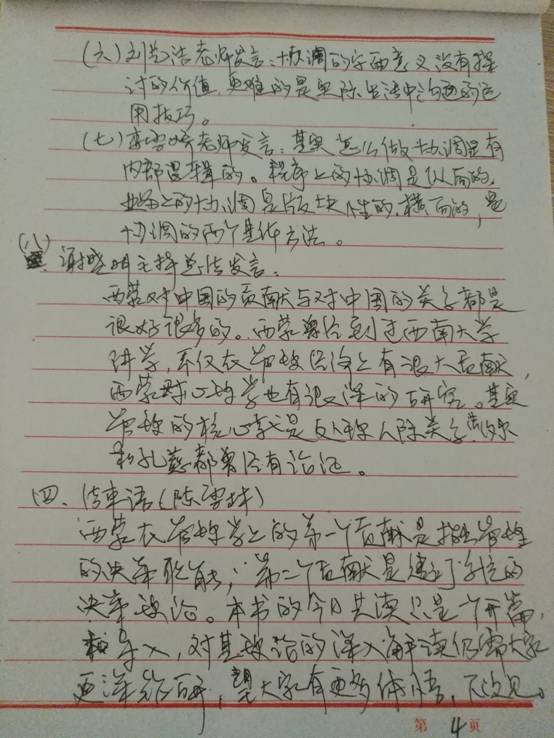 (六)刘志浩老师发言:协调的字面意义没有探
讨的价值,更难的是实际生活中沟通的运
用技巧。
(七)老师发言:其实怎么做协调是有
内部逻辑的。程序上的协调是纵向的,
业务上的协调是版块性的、横向的,是
协调的两个基本方法。
(八)谢明主持总结发言:
西蒙对中国的贡献与对中国的关系都是
很好很多的。西蒙曾经到过西南大学
讲学,不仅在管理理论上有很大贡献,
西蒙对心理学也有很深的研究。其实
管理的核心就是反映人际关系,
和孔茨都曾经有论述。
四、结束语(陈雪林)
西蒙在管理学上的第一个贡献是指出管理
的决策职能,第二个贡献是建立了系统的
决策理论。本书的今日共读只是一个开篇
和导入,对其理论的深入解读仍需大家
更深钻研,望大家有更多体悟,下次见。
第4页